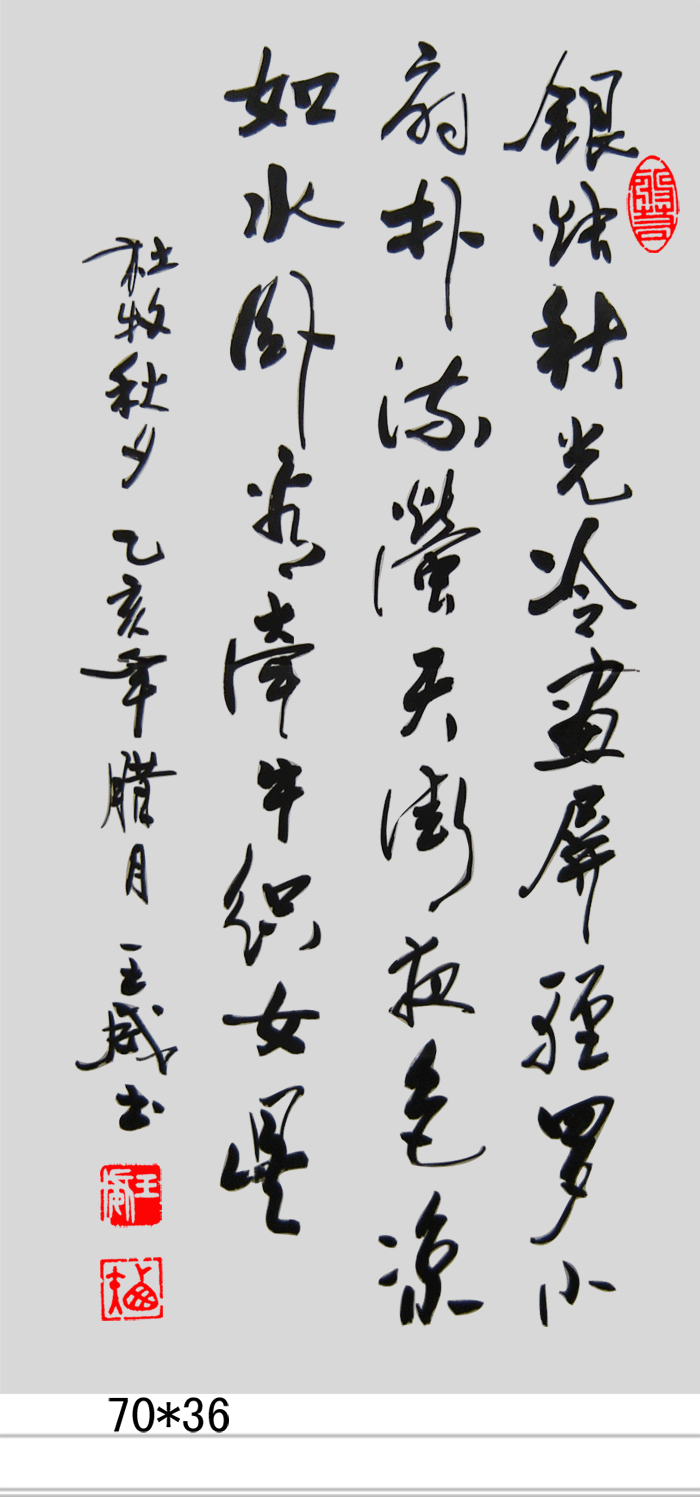 銀烛秋光冷畫屏輕罗小
扇扑流螢天街夜色凉
如水卧看牽牛织女星
杜牧秋夕 乙亥年腊月 王威书
70*36